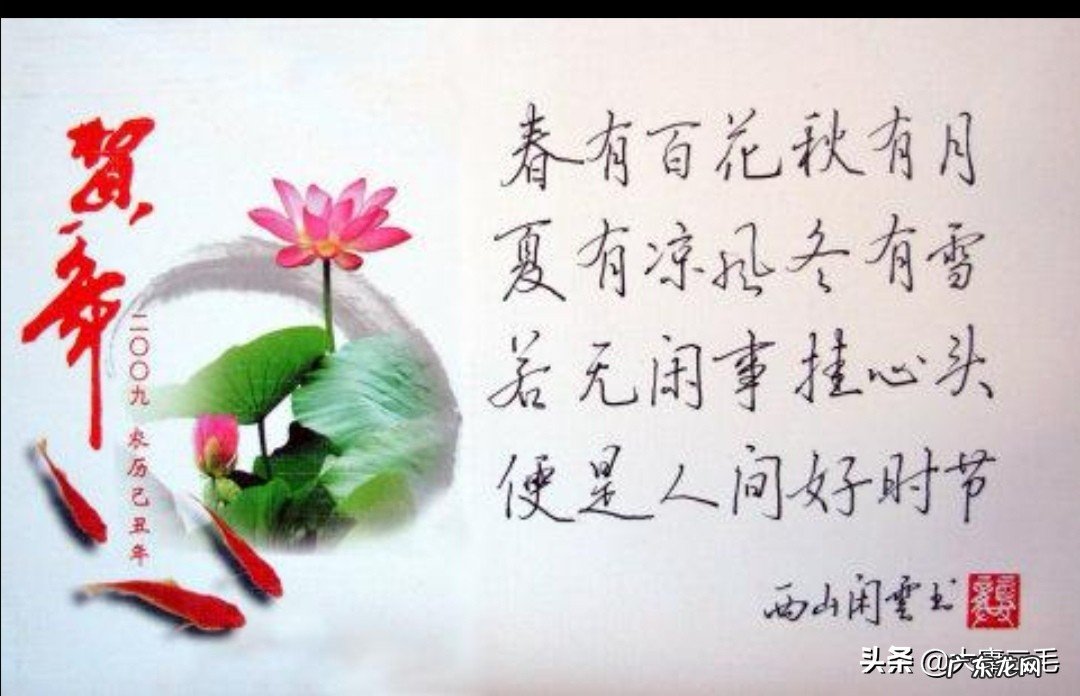 贺年
二〇〇九 农历己丑年
春有百花秋有月
夏有凉风冬有雪
若无闲事挂心头
便是人间好时节
西山闲云书
头条 @广东龙网